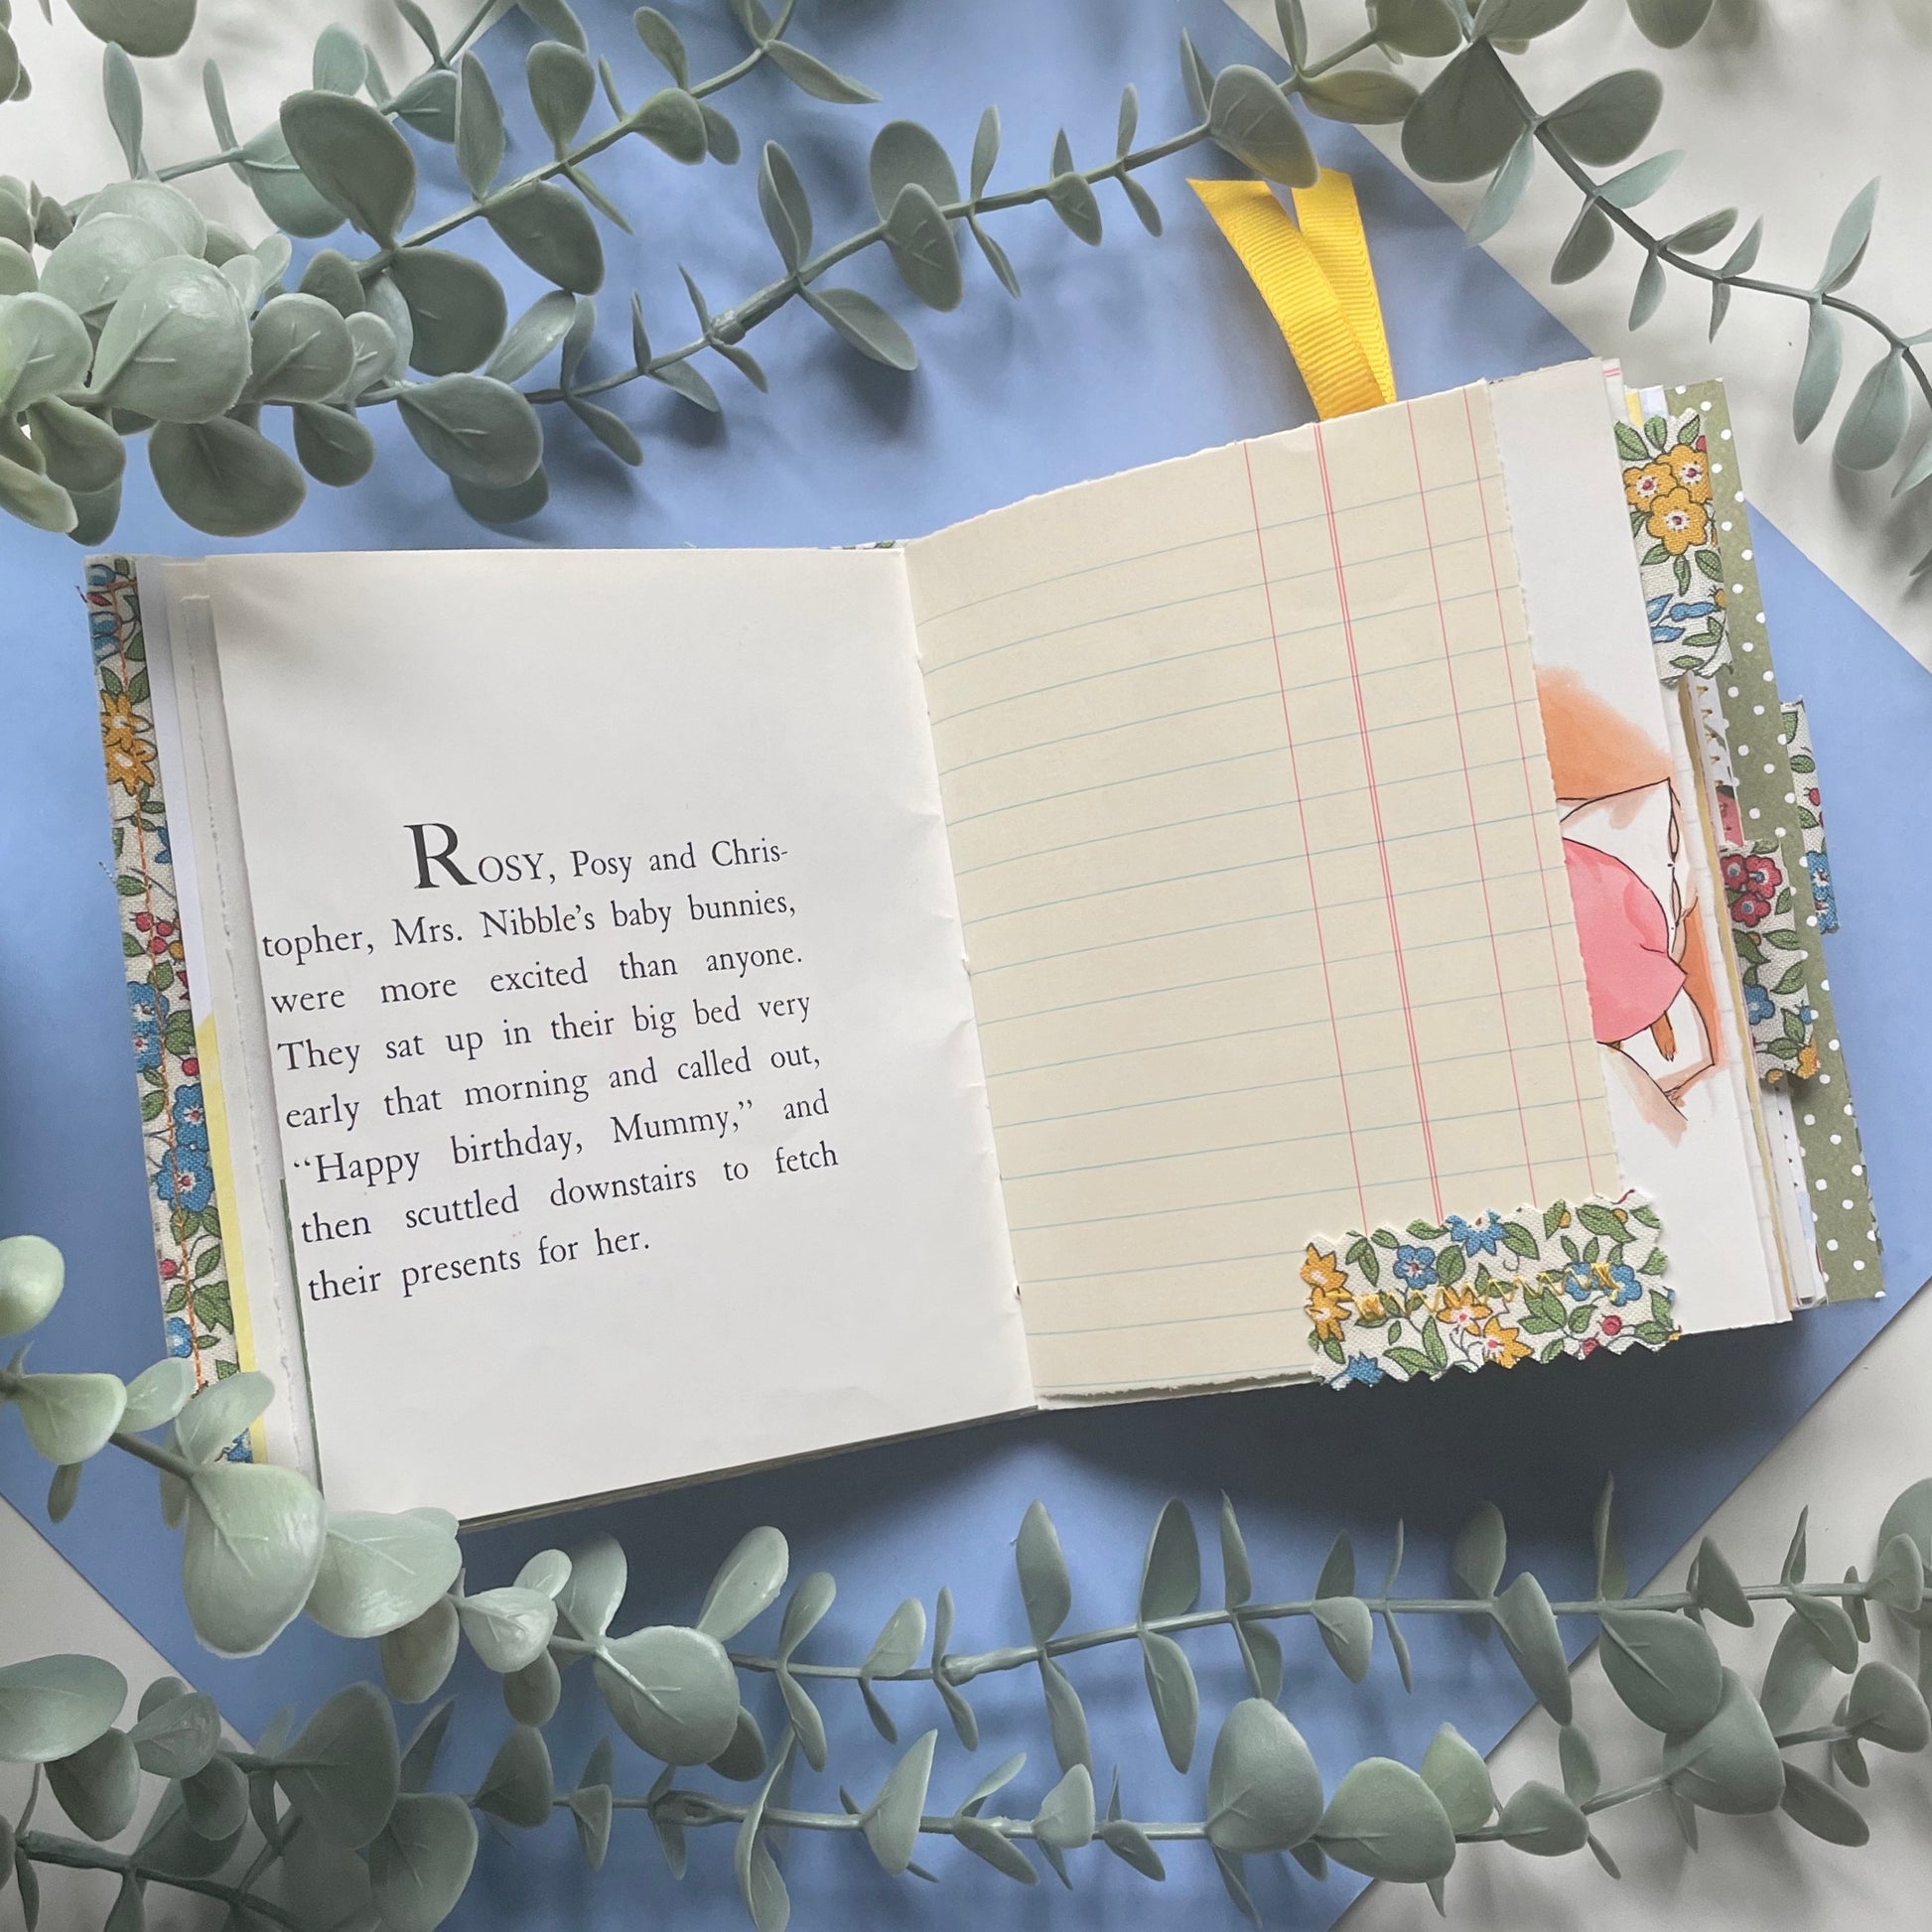 ROSY, Posy and Chris-
topher, Mrs. Nibble's baby bunnies,
were more excited than anyone.
They sat up in their big bed very
early that morning and called out,
“Happy birthday, Mummy,” and
then scuttled downstairs to fetch
their presents for her.